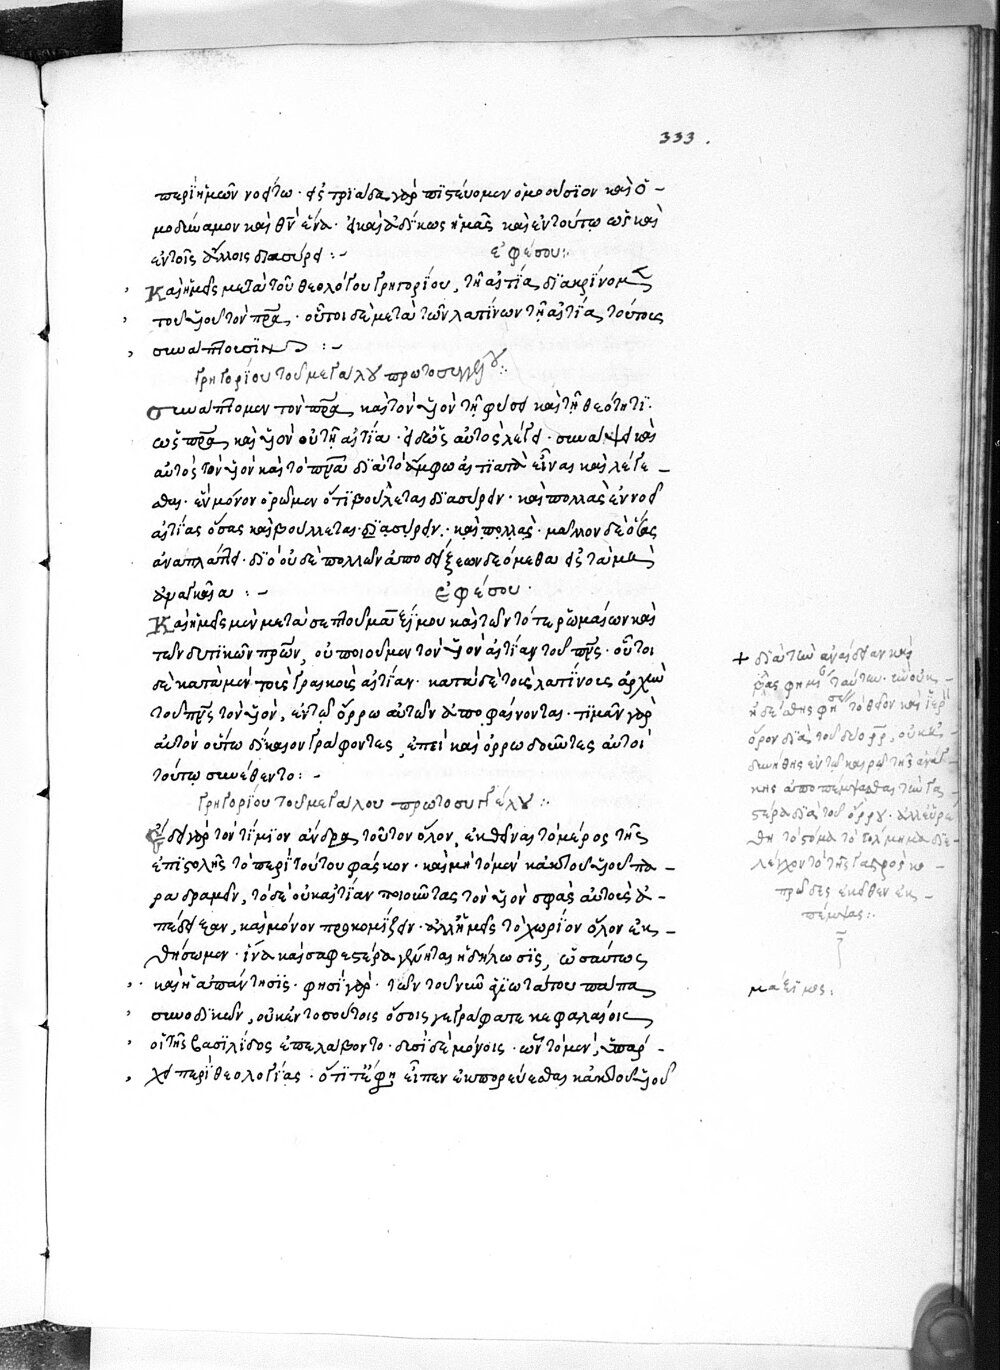 333.
περὶ ἡμῶν νοείτω· εἰς τριάδα γὰρ πιστεύομεν ὁμοούσιον καὶ ὁ-
μοδύναμον καὶ θν ἕνα· καὶ ἀδίκως ἡμᾶς καὶ ἐν τούτῳ ὡς καὶ
ἐν τοῖς ἄλλοις διασύρει :-
ἐφέσου:
Καὶ ἡμεῖς μετὰ τοῦ θεολόγου γρηγορίου, τῇ αἰτίᾳ διακρίνομεν
τοῦ υἱοῦ τὸν πρα· οὗτοι δὲ μετὰ τῶν λατίνων τῇ αἰτίᾳ τούτοις
συνάπτουσιν :-
Γρηγορίου τοῦ μεγάλου πρωτοσυγγέλου :
Συνάπτομεν τὸν πρα καὶ τὸν υἱὸν τῇ φύσει καὶ τῇ θεότητι·
ὡς πρα καὶ υἱὸν οὐ τῇ αἰτίᾳ· εἰ δὲ ὡς αὐτὸς λέγει· συνάψει καὶ
αὐτὸς τὸν υἱὸν καὶ τὸ πνα διὰ τὸ ἄμφω αἰτιατὰ εἶναι καὶ λέγε-
σθαι· ἓν μόνον ὁρῶμεν ὅτι βούλεται διασύρειν· καὶ πολλὰς ἐννοεῖ
αἰτίας ὅσας καὶ βούλλεται διασύρειν· καὶ πολλὰς· μᾶλλον δὲ οἵας
ἀναπλάττει· διὸ οὐδὲ πολλῶν ἀποδείξεων δεόμεθα εἰς τὰ μὴ
ἀναγκαῖα :-
ἐφέσου·
Καὶ ἡμεῖς μὲν μετὰ σεπτοῦ μαξίμου καὶ τῶν τότε ῥωμαίων καὶ
τῶν δυτικῶν πρων, οὐ ποιοῦμεν τὸν υἱὸν αἰτίαν τοῦ πνς· οὗτοι
δὲ κατὰ μὲν τοὺς γραικοὺς αἰτίαν· κατὰ δὲ τοὺς λατίνους ἀρχὴν
τοῦ πνς τὸν υἱὸν, ἐν τῷ ὅρρω αὐτῶν ἀποφαίνονται· τιμᾶν γὰρ
αὐτὸν οὕτω δίκαιον γράφοντες, ἐπεὶ καὶ ὅρρω δοῦντες αὐτοὶ
τούτῳ συνέθεντο :-
Γρηγορίου τοῦ μεγάλου πρωτοσυγγέλου :
Ἔδει γὰρ τὸν τίμιον ἄνδρα τοῦτον ὅλον, ἐκθεῖναι τὸ μέρος τῆς
ἐπιστολῆς τὸ περὶ τούτου φάσκον· καὶ μὴ τὸ μὲν κἀκ τοῦ υἱοῦ πα-
ραδραμεῖν, τὸ δὲ οὐκ αἰτίαν ποιοῦντας τὸν υἱὸν σφᾶς αὐτοὺς ἀ-
πέδειξαν, καὶ μόνον προκομίζειν· ἀλλ' ἡμεῖς τὸ χωρίον ὅλον ἐκ-
θήσωμεν· ἵνα καὶ σαφεστέρα γένηται ἡ δήλωσις, ὡσαύτως
καὶ ἡ ἀπάντησις· φησὶ γὰρ· τῶν τοῦ νῦν ἁγιωτάτου πάπα
συνοδικῶν, οὐκ ἐν τοσούτοις ὅσοις γεγράφατε κεφαλαίοις
οἱ τῆς βασιλίδος ἐπελάβοντο· δυσὶ δὲ μόνοις· ὧν τὸ μὲν, ὑπάρ-
χει περὶ θεολογίας· ὅτι τε ἔφη εἶπεν ἐκπορεύεσθαι κἀκ τοῦ υἱοῦ
+ διὰ τὴν ἀναίδειαν καὶ
φημὶ ταύτην· οὐκ
ᾐδέσθης τὸ θεῖον καὶ ἱερὸν
ὅρον διὰ τοῦ δύο ρρ, οὐκ ἐ-
δυνήθης ἐν τῷ καιρῷ τῆς ἀνάγ-
κης ἀποπέμψασθαι τὴν γα-
στέρα διὰ τοῦ ὅρρου· ἀλλ' εὑρέ-
θη τὸ στόμα τὸ τόλμημα διε-
λέγχον τὸ τῆς γαστρὸς κο-
πρῶδες ἐκεῖθεν ἐκ-
πέμψαι :
μάξιμος.